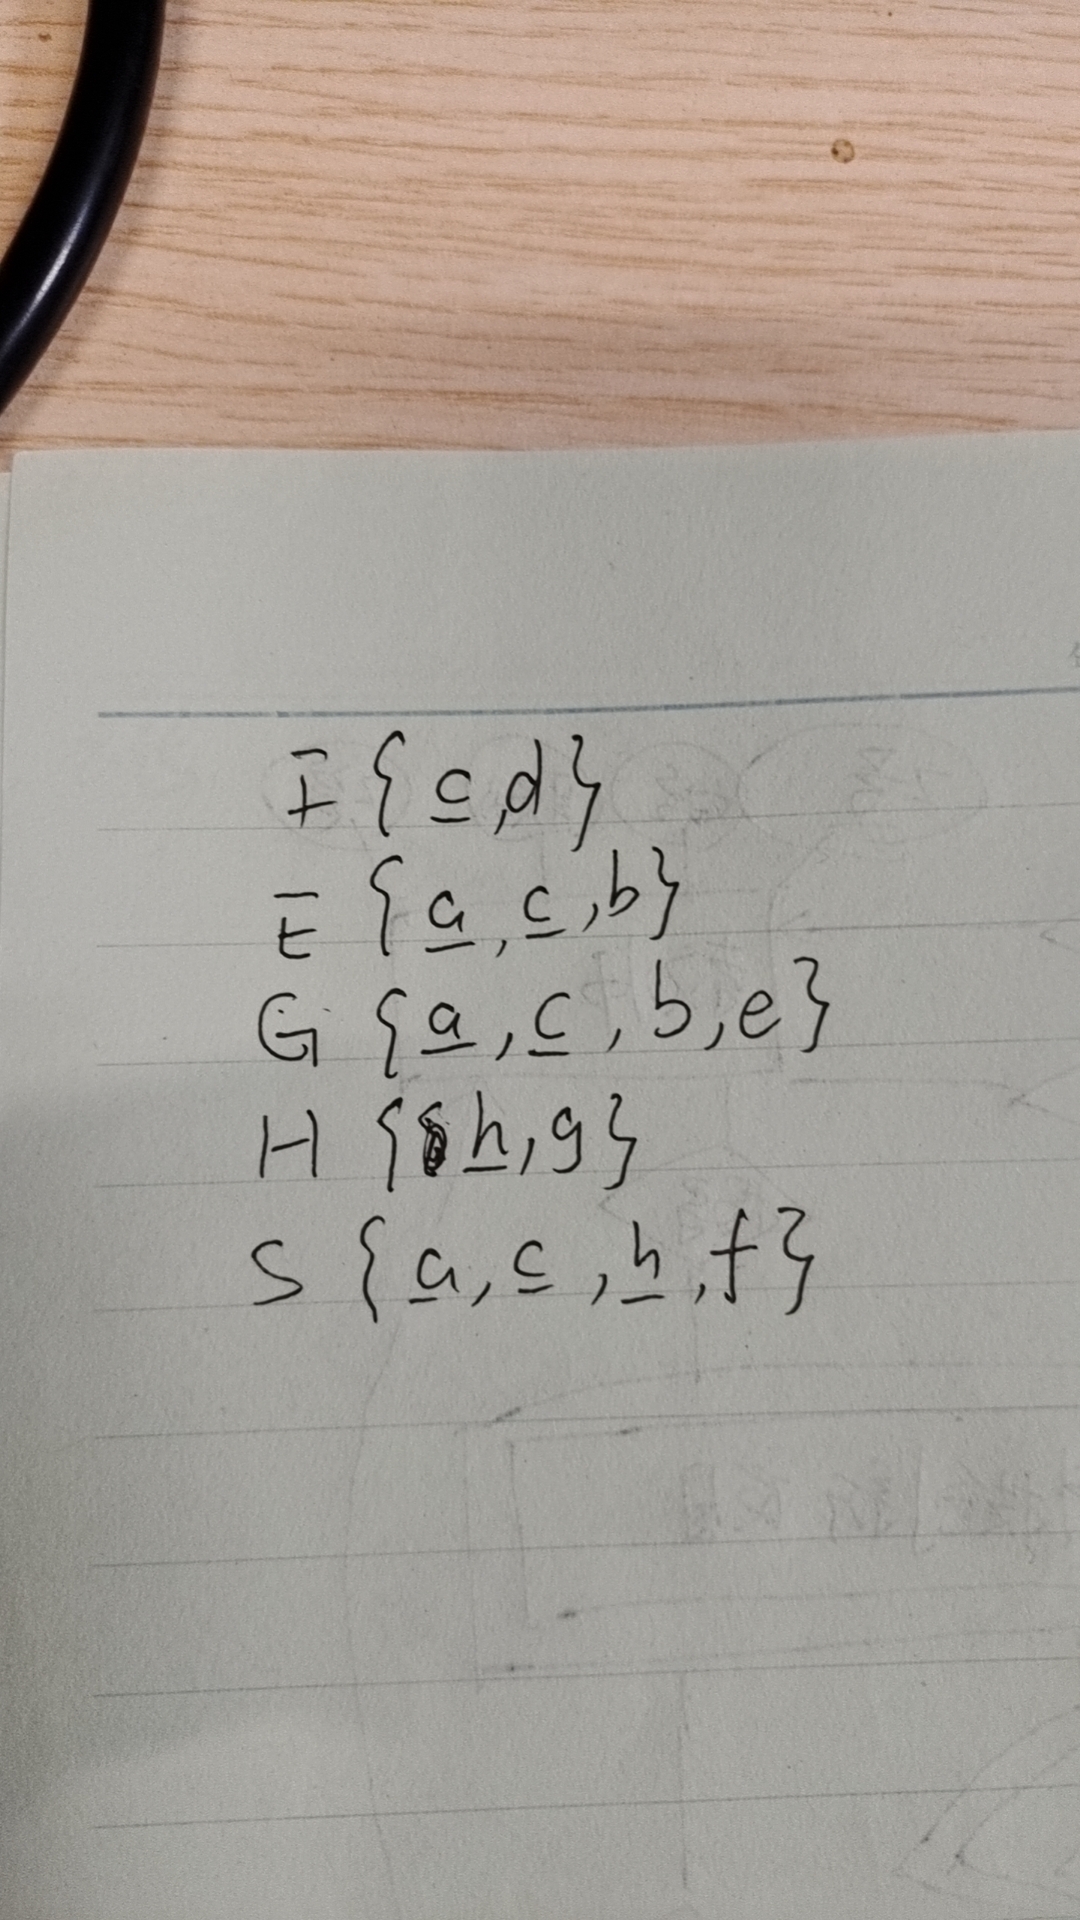 I {c,d}
E {a,c,b}
G {a,c,b,e}
H {h,g}
S {a,c,h,f}